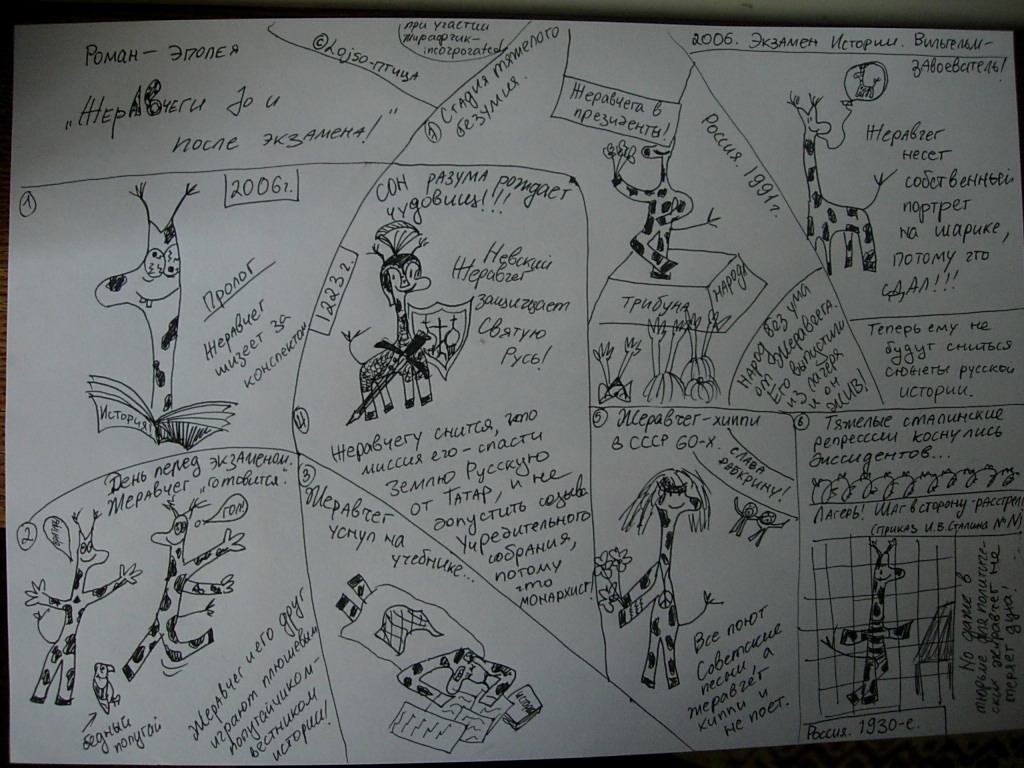 Роман – эпопея
"ЖерАВчеги До и
после экзамена!"
©Lojso-птица
при участии
жирафчик-
incorporated!
①
2006г.
История!
Пролог
Жеравчег
шизеет за
конспектом
②
День перед экзаменом.
Жеравчег „готовится".
ГОЛ!
бедный
попугай
Жеравчег и его друг
играют плюшевым
попугайчиком-
вестником
истории!
③
Жеравчег
уснул на
учебнике...
④
1223 г.
СОН разума рождает
чудовищ!!!
Невский
Жеравчег
защищает
Святую
Русь!
Жеравчегу снится, что
миссия его – спасти
Землю Русскую
от Татар, и не
допустить созыва
Учредительного
собрания,
потому
что
монархист!
⑤
Жеравчег-хиппи
в СССР 60-х.
СЛАВА
Все поют
Советские
песни, а
жеравчег
хиппи и
не поет.
⑥
Тяжелые сталинские
репрессии коснулись
диссидентов...
Лагерь! Шаг в сторону расстрел!
(приказ И.В.Сталина №
Но даже в
тюрьме для политичес-
ких жеравчег не
теряет дух!
Россия. 1930-е.
Стадия тяжелого
безумия.
Жеравчега в
президенты!
Россия. 1991г.
Трибуна
НАРОД!
Народ без ума
от Жеравчега.
Его выпустили
из лагеря
и он
ЖИВ!
2006. Экзамен Истории. Вильгельм-
завоеватель!
Жеравчег
несет
собственный
портрет
на шарике,
потому что
СДАЛ!!!
Теперь ему не
будут сниться
сюжеты русской
истории.